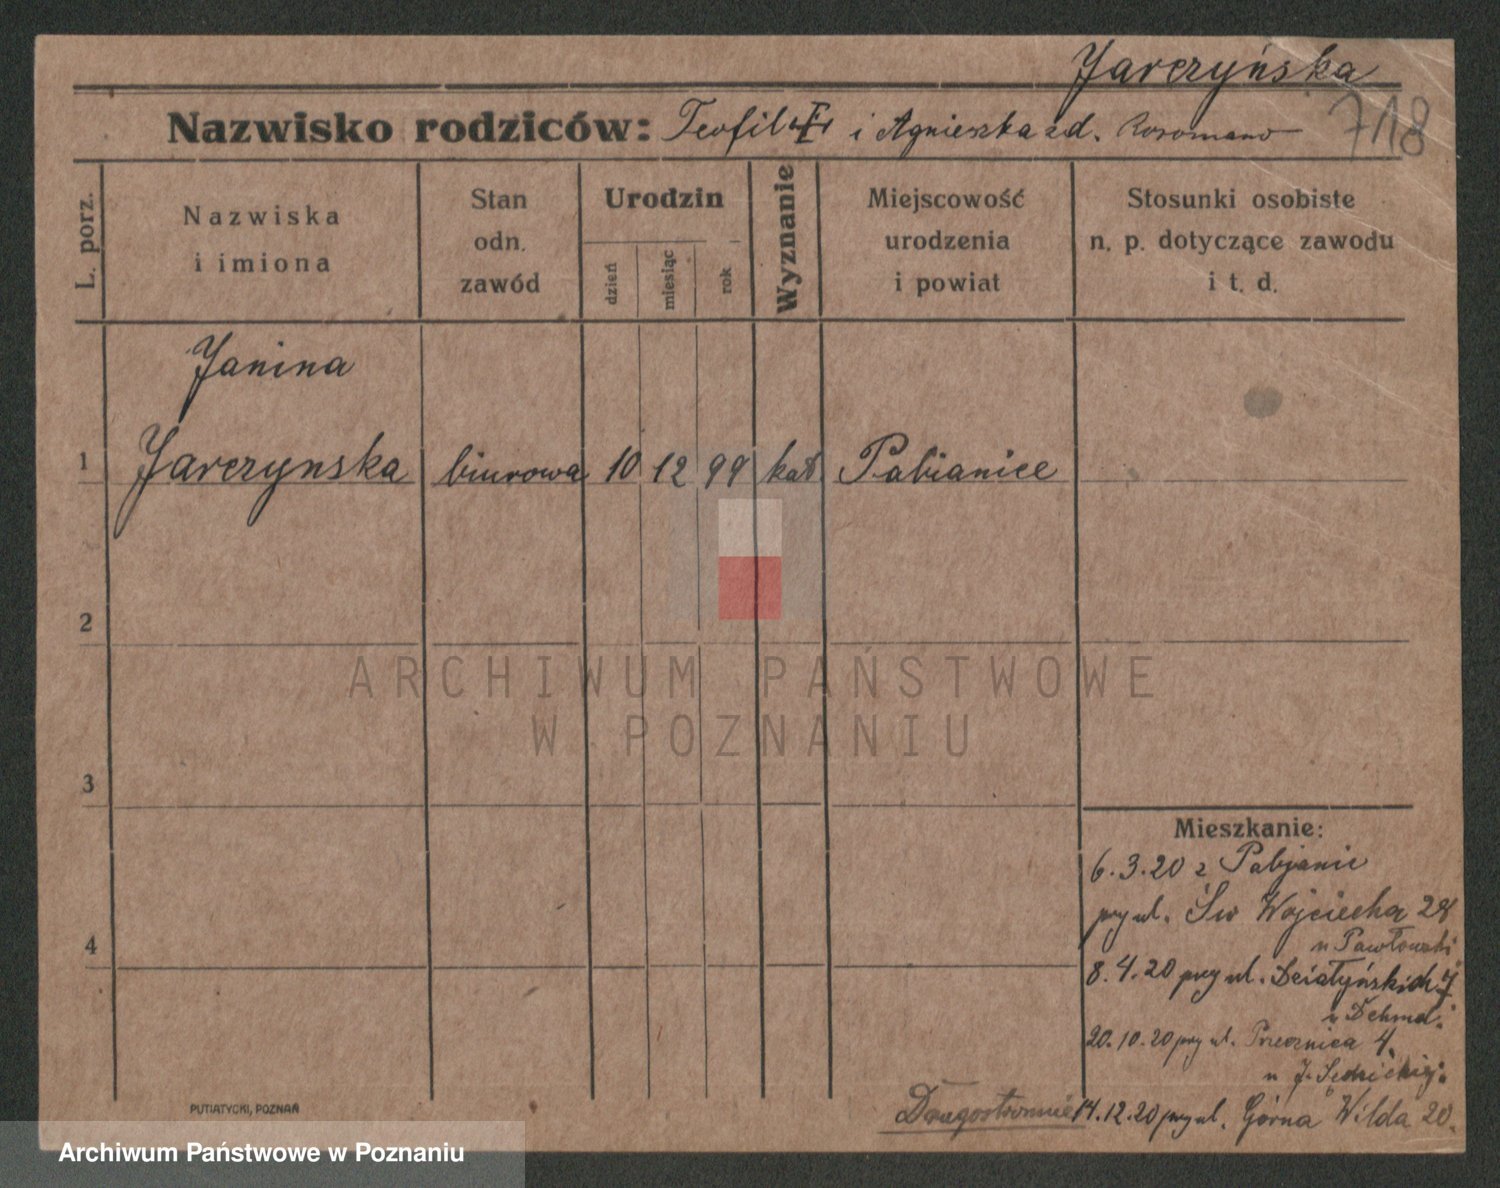 Jarczyńska
718
Nazwisko rodziców: Teofil i Agnieszka zd.
L. porz.
Nazwiska
i imiona
Stan
odn.
zawód
Urodzin
dzień
miesiąc
rok
Wyznanie
Miejscowość
urodzenia
i powiat
Stosunki osobiste
n. p. dotyczące zawodu
i t. d.
Janina
1 Jarczynska biurowa 10 12 99 kat Pabianice
2
3
4
ARCHIWUM PAŃSTWOWE
W POZNANIU
Mieszkanie:
6.3.20 z Pabjanic
przy ul. Św Wojciecha 28
u Pawłowski
8.4.20 przy ul.
u
20.10.20 przy ul. Przecznica 4.
u J.
Drugostronnie 14.12.20 przy ul. Górna Wilda 20.
PUTIATYCKI, POZNAŃ
Archiwum Państwowe w Poznaniu